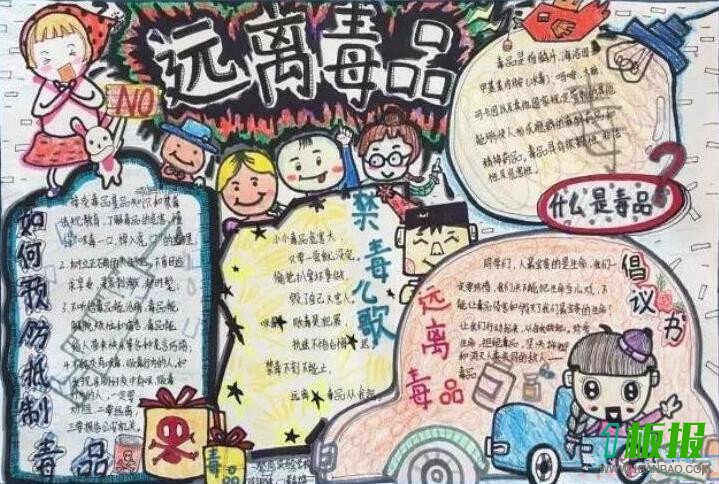 远离毒品
NO
毒品是指鸦片、海洛因、
甲基苯丙胺(冰毒)、吗啡、大麻、
可卡因以及其他国家规定管制的其他
能够使人形成瘾癖的麻醉药品和
精神药品。毒品具有依赖性、非法
性及危害性。
什么是毒品?
如何预防抵制毒品
1. 接受毒品基本知识和禁毒
法规教育,了解毒品的危害,懂得
“吸毒一口,掉入虎口”的道理。
2. 树立正确的
3. 不听信毒品能治病,毒品能
解脱烦恼和痛苦,毒品能
给人带来快乐等各种花言巧语。
4. 不结交有吸毒、贩毒行为的人。如
发现亲朋好友中有吸、贩毒
行为的人,一定要
劝阻,二要远离,
三要报告公安机关。
禁毒儿歌
小小毒品危害大,
只要一尝就没完。
偷抢扒拿坏事做,
毁了自己又害人。
吸贩毒是犯罪,
执迷不悟白
禁毒不到不能止,
远离毒品从我起。
倡议书
同学们,人最宝贵的是生命,我们一
定要珍惜,我们决不能把生命当儿戏,不
能让毒品侵害和毁灭了我们最宝贵的生命!
让我们行动起来,从自我做起。珍爱
生命,拒绝毒品,坚决抵制
和消灭人类共同的敌人——
毒品
远离毒品
毒品
板报